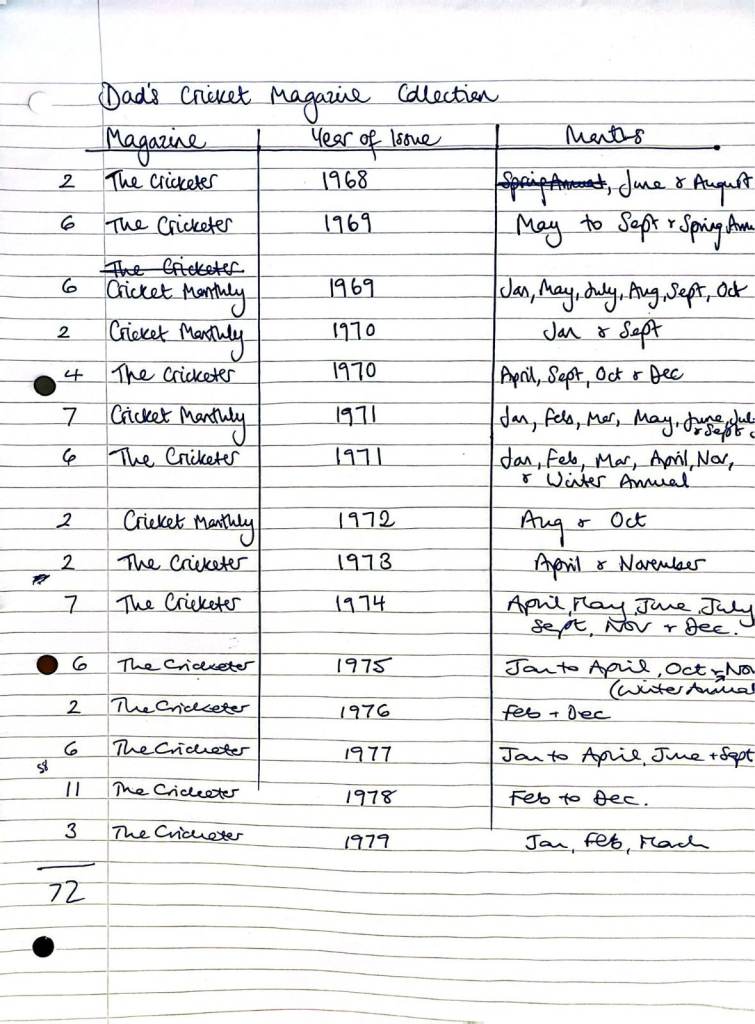 Dad's Cricket Magazine Collection
Magazine Year of Issue Months
2 The Cricketer 1968 Spring Annual, June & August
6 The Cricketer 1969 May to Sept & Spring Annu
The Cricketer
6 Cricket Monthly 1969 Jan, May, July, Aug, Sept, Oct
2 Cricket Monthly 1970 Jan & Sept
4 The Cricketer 1970 April, Sept, Oct & Dec
7 Cricket Monthly 1971 Jan, Feb, Mar, May, June, Jul
& Sept
6 The Cricketer 1971 Jan, Feb, Mar, April, Nov,
& Winter Annual
2 Cricket Monthly 1972 Aug & Oct
2 The Cricketer 1973 April & November
7 The Cricketer 1974 April, May, June, July
Sept, Nov + Dec.
6 The Cricketer 1975 Jan to April, Oct + Nov
(Winter Annual
2 The Cricketer 1976 Feb + Dec
6 The Cricketer 1977 Jan to April, June + Sept
11 The Cricketer 1978 Feb to Dec.
3 The Cricketer 1979 Jan, Feb, March
72